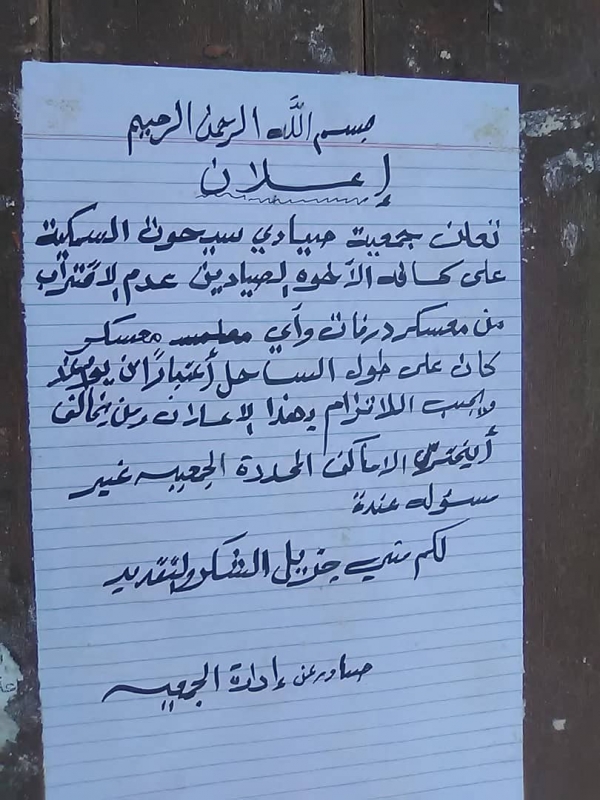 بسم الله الرحمن الرحيم
إعــلان
تعلن جمعية صيادي سيحوت السمكية
على كافه الأخوه الصيادين عدم الاقتراب
من معسكر درفات وأي معسكر
كان على طول الساحل أعتباراً من يوم غد
ويجب اللاتزام بهذا الإعلان ومن يخالف
أو يقترب الاماكن المحددة الجمعيه غير
مسئوله عندة
لكم مني جزيل الشكر والتقدير
صادر عن إدارة الجمعيه